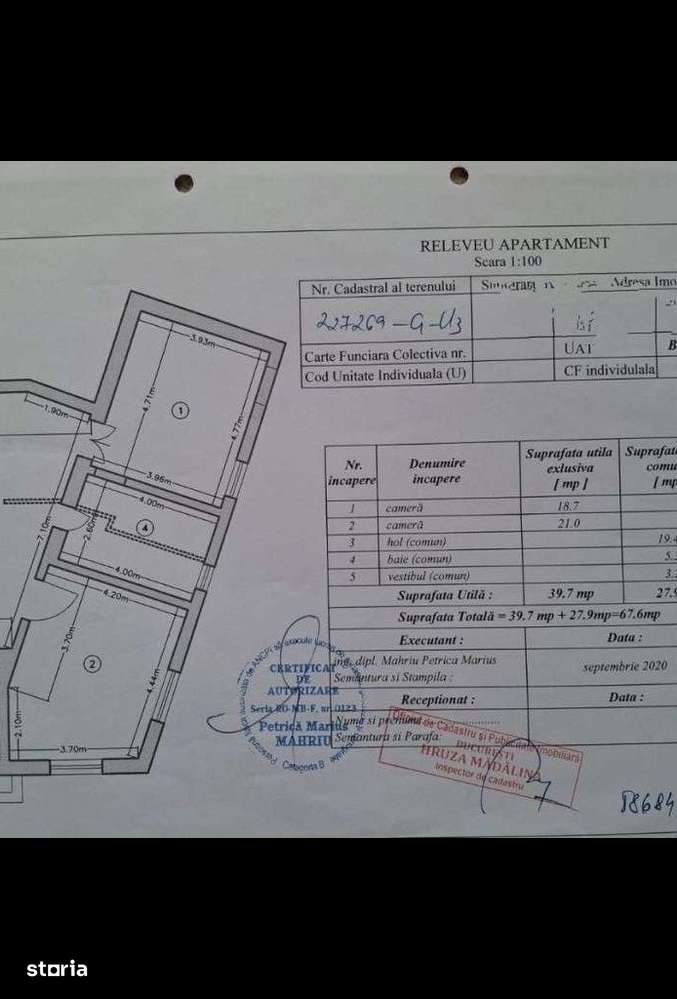 RELEVEU APARTAMENT
Scara 1:100
Nr. Cadastral al terenului
Adresa Imo
227269-G-U3
Carte Funciara Colectiva nr.
UAT
B
Cod Unitate Individuala (U)
CF individulala
3.93m
4.71m
1
4.77m
3.96m
1.90m
4.00m
4
2.60m
7.10m
4.00m
4.20m
3.70m
2
4.44m
2.10m
3.70m
Nr. incapere
Denumire incapere
Suprafata utila exlusiva [ mp ]
Suprafata comu [ mp
1 cameră 18.7
2 cameră 21.0
3 hol (comun) 19.4
4 baie (comun) 5.
5 vestibul (comun) 3.2
Suprafata Utilă : 39.7 mp 27.9
Suprafata Totală = 39.7 mp + 27.9mp=67.6mp
Executant : Data :
ing. dipl. Mahriu Petrica Marius
Semantura si Stampila :
septembrie 2020
Receptionat : Data :
Nume si prenume
Semantura si Parafa:
CERTIFICAT
DE
AUTORIZARE
Seria RO-MB-F, nr. 0123
Petrică Marius
MAHRIU
Categoria B
Oficiul de Cadastru și Publicitate Imobiliară
BUCUREȘTI
HRUZA MĂDĂLINA
inspector de cadastru
storia